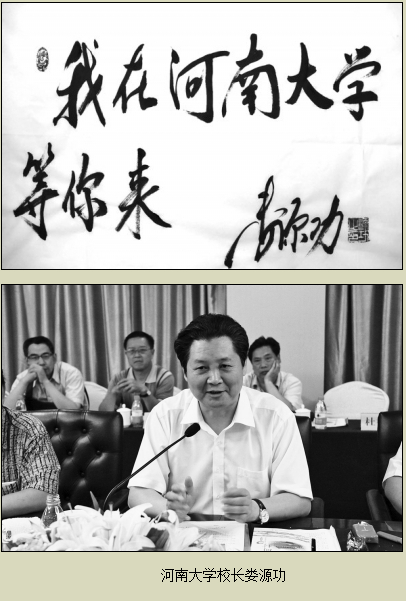 我在河南大学
等你来
娄源功
杜
河南大学校长娄源功